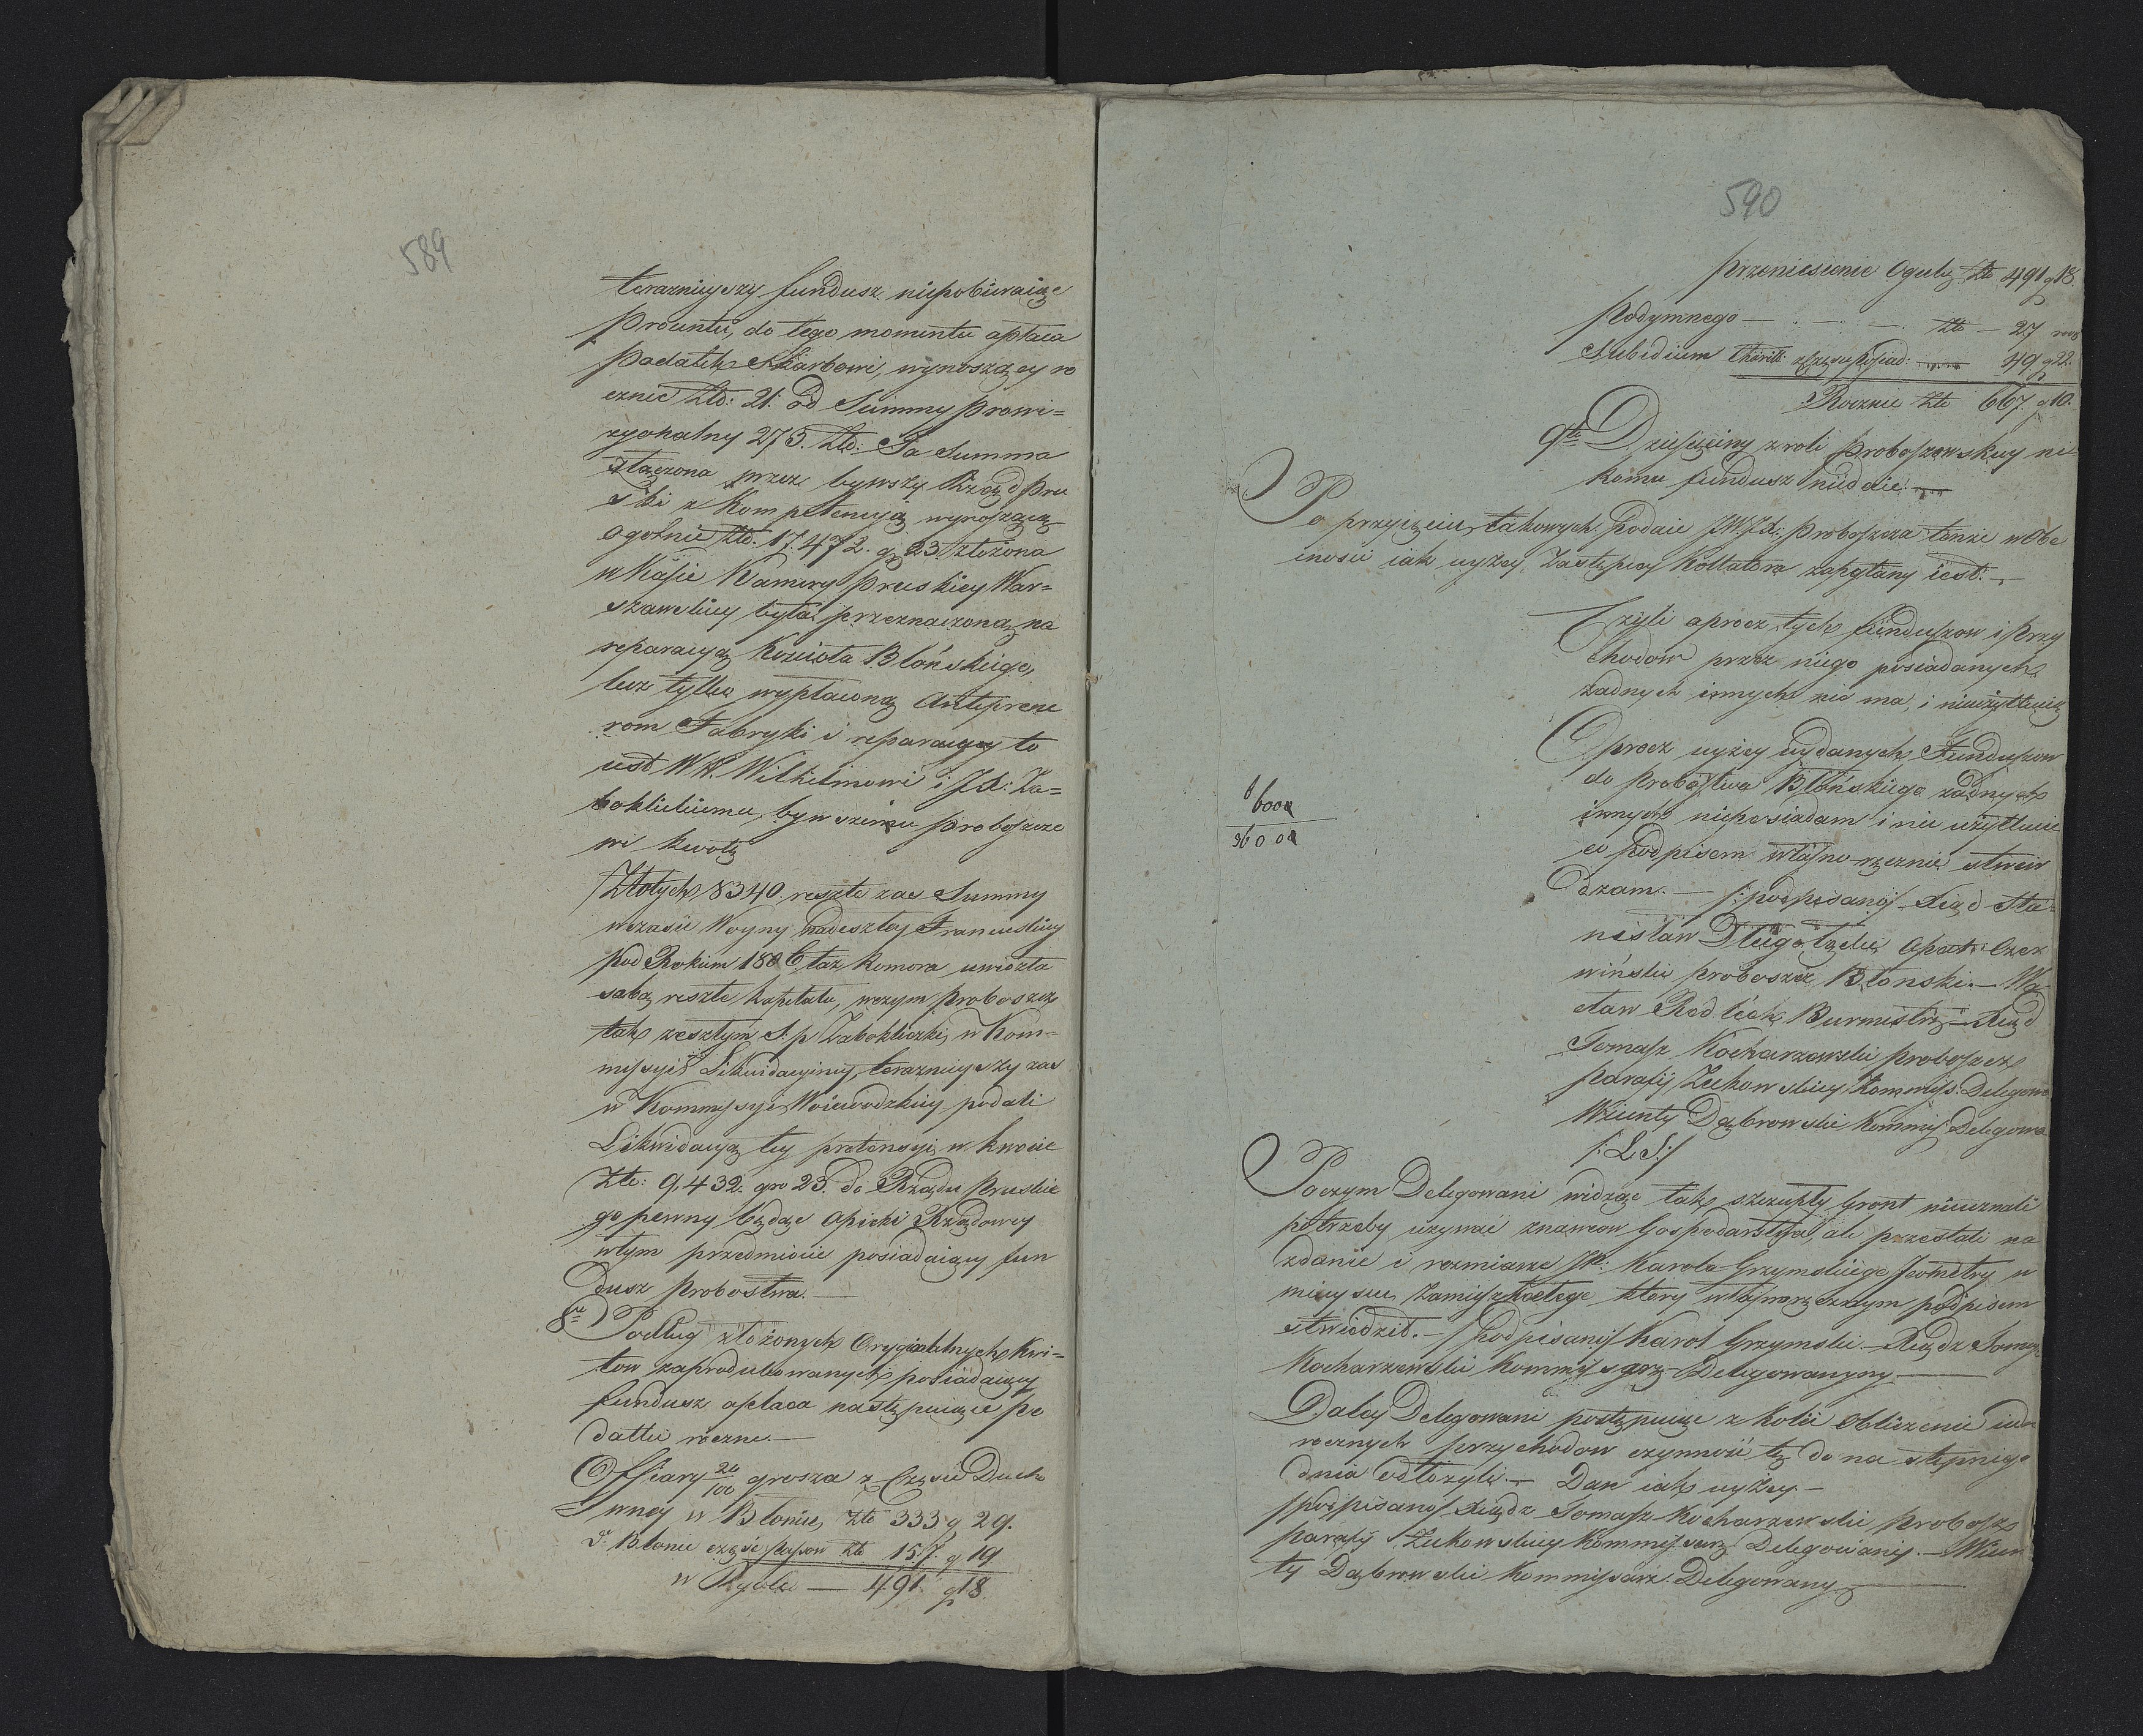 589
teraznieyszy fundusz niepobieraiąc
Prountu, do tego momentu opłaca
Podatek Skarbowi, wynoszący ro
cznie Złło: 21. od Summy prowi=
zyonalny 275. Złło: Ta Summa
złączona przez bywszy Rząd Pru
ski z Kompetencyą wynoszącą
ogolnie Złło: 17.472. g 23 złożona
w Kasie Kamery Pruskiey War=
szawskiey była przeznaczoną na
reparacyą Kościoła Błońskiego,
lecz tylko wypłaconą Antrprene
rom Fabryki i reparacyey to
iest Wilhelmowi i Za=
boklickiemu, bywszemu Proboszczo
wi kwotę
Złotych 8340. resztę zas Summy
wczasie Woyny nadeszłey Francuskiey
pod Rokiem 1806 taż Komora uwiozła
sobą resztę Kapitału, wczym Proboszcz
tak zeszłym S. p Zaboklicki, w Kom=
missyi Likwidacyiney, teraznieyszy zas
w Kommissyi Woiewodzkiey podali
Likwidacyą tey pretensyi w kwocie
Złło: 9,432. gro 23. do Rządu Pruskie
go pewny będąc Opieki Rządowey
wtym przedmiocie posiadaiący fun
dusz Probostwa.—
8ve Podług złożonych Oryginalnych Kwi=
tow zaprodukowanych posiadaiący
fundusz opłaca następuiące po
datki roczne.—
Offiary 20/100 grosza z Części Duch
wney w Błoniu, Złło 333 g 29.
dto Błonie część Złło 157. g 19
w Ogule — 491. g 18

590
Przeniesienie Ogułu Złło 491 g 18.
Podymnego — . — . — . Złło — 27
Subsidium Charitt: 49 g 22.
Rocznie Złło 667. g 10.
9te Dziesięciny z roli Proboszowskiey ni
komu fundusz niedaie.
Po przyięciu takowych Podaie Proboszcza tenże w Obe
cności iak wyżey Zastępcy Kollatora zapytany iest.—
Czyli oprocz tych funduszow i Przy
chodow przez niego posiadanych
żadnych innych nie ma, i nieużytkuie
Oprocz wyżey wydanych Funduszow
do Probostwa Błońskiego żadnych
innych nieposiadam i nie użytkuie
co Podpisem własno-ręcznie stwier
dzam.— /:podpisano:/ Xiąd Sta=
nisław Długołęcki Opat Czer
wiński Proboszcz Błonski.— Wa
cław Redlich Burmistrz.— Xiąd
Tomasz Kocharzewski Proboszcz
Parafij Zukowskiey Kommis: Delegow
Wincenty Dąbrowski Kommis: Delegowa
/:L.S:/
6000
36000
Poczym Delegowani widząc tak szczupły Gront nieuznali
potrzeby używać znawcow Gospodarstwa, ale przestali na
zdanie i rozmiarze JP: Karola Grzymskiego Jeometry, w
mieyscu Zamieszkałego który własnoręcznym podpisem
stwiedził.— /Podpisano/ Karol Grzymski.— Xiądz Tomasz
Kocharzewski Kommissarz Delegowanym.—
Daley Delegowani postępuiąc z Kolei Obliczenie
rocznych przychodow czynność tę do na stępnego
dnia odłożyli.— Dan iak wyżey.—
/podpisano/ Xiądz Tomasz Kocharzewski Probosz
Parafij Zukowskiey Kommissarz Delegowany.— Wincen
ty Dąbrowski Kommissarz Delegowany